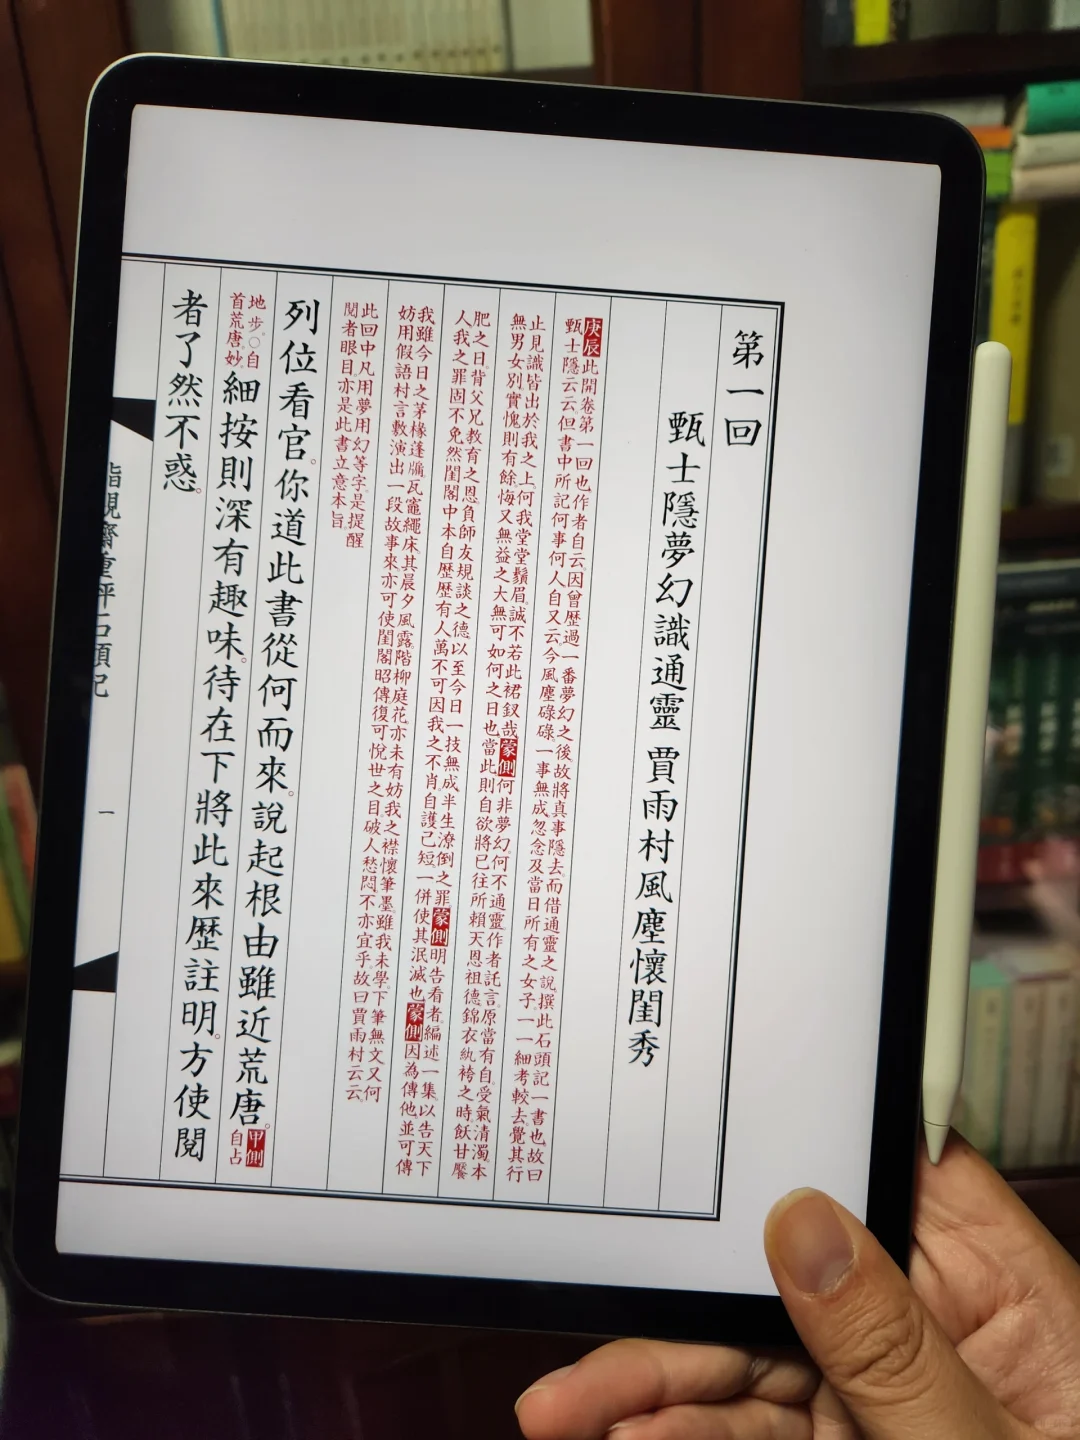 第一回
甄士隱夢幻識通靈 賈雨村風塵懷閨秀
庚辰此開卷第一回也。作者自云。因曾歷過一番夢幻之後。故將真事隱去。而借通靈之說。撰此石頭記一書也。故曰
甄士隱云云。但書中所記何事何人。自又云。今風塵碌碌。一事無成。忽念及當日所有之女子。一一細考較去。覺其行
止見識皆出於我之上。何我堂堂鬚眉。誠不若此裙釵哉。蒙側何非夢幻。何不通靈。作者託言。原當有自。受氣清濁。本
無男女別。實愧則有餘。悔又無益之大無可如何之日也。當此則自欲將已往所賴天恩祖德。錦衣紈袴之時。飫甘饜
肥之日。背父兄教育之恩。負師友規談之德。以至今日一技無成。半生潦倒之罪。蒙側明告看者。編述一集。以告天下
人。我之罪固不免。然閨閣中本自歷歷有人。萬不可因我之不肖自護己短。一併使其泯滅也。蒙側因為傳他。並可傳
我。雖今日之茅椽蓬牖。瓦竈繩床。其晨夕風露。階柳庭花。亦未有妨我之襟懷筆墨。雖我未學。下筆無文。又何
妨用假語村言。敷演出一段故事來。亦可使閨閣昭傳。復可悅世之目。破人愁悶。不亦宜乎。故曰賈雨村云云。
此回中凡用夢用幻等字。是提醒
閱者眼目。亦是此書立意本旨。
列位看官。你道此書從何而來。說起根由雖近荒唐。甲側自占
地步。○自首荒唐。妙。細按則深有趣味。待在下將此來歷註明。方使閱
者了然不惑。
脂硯齋重評石頭記
一